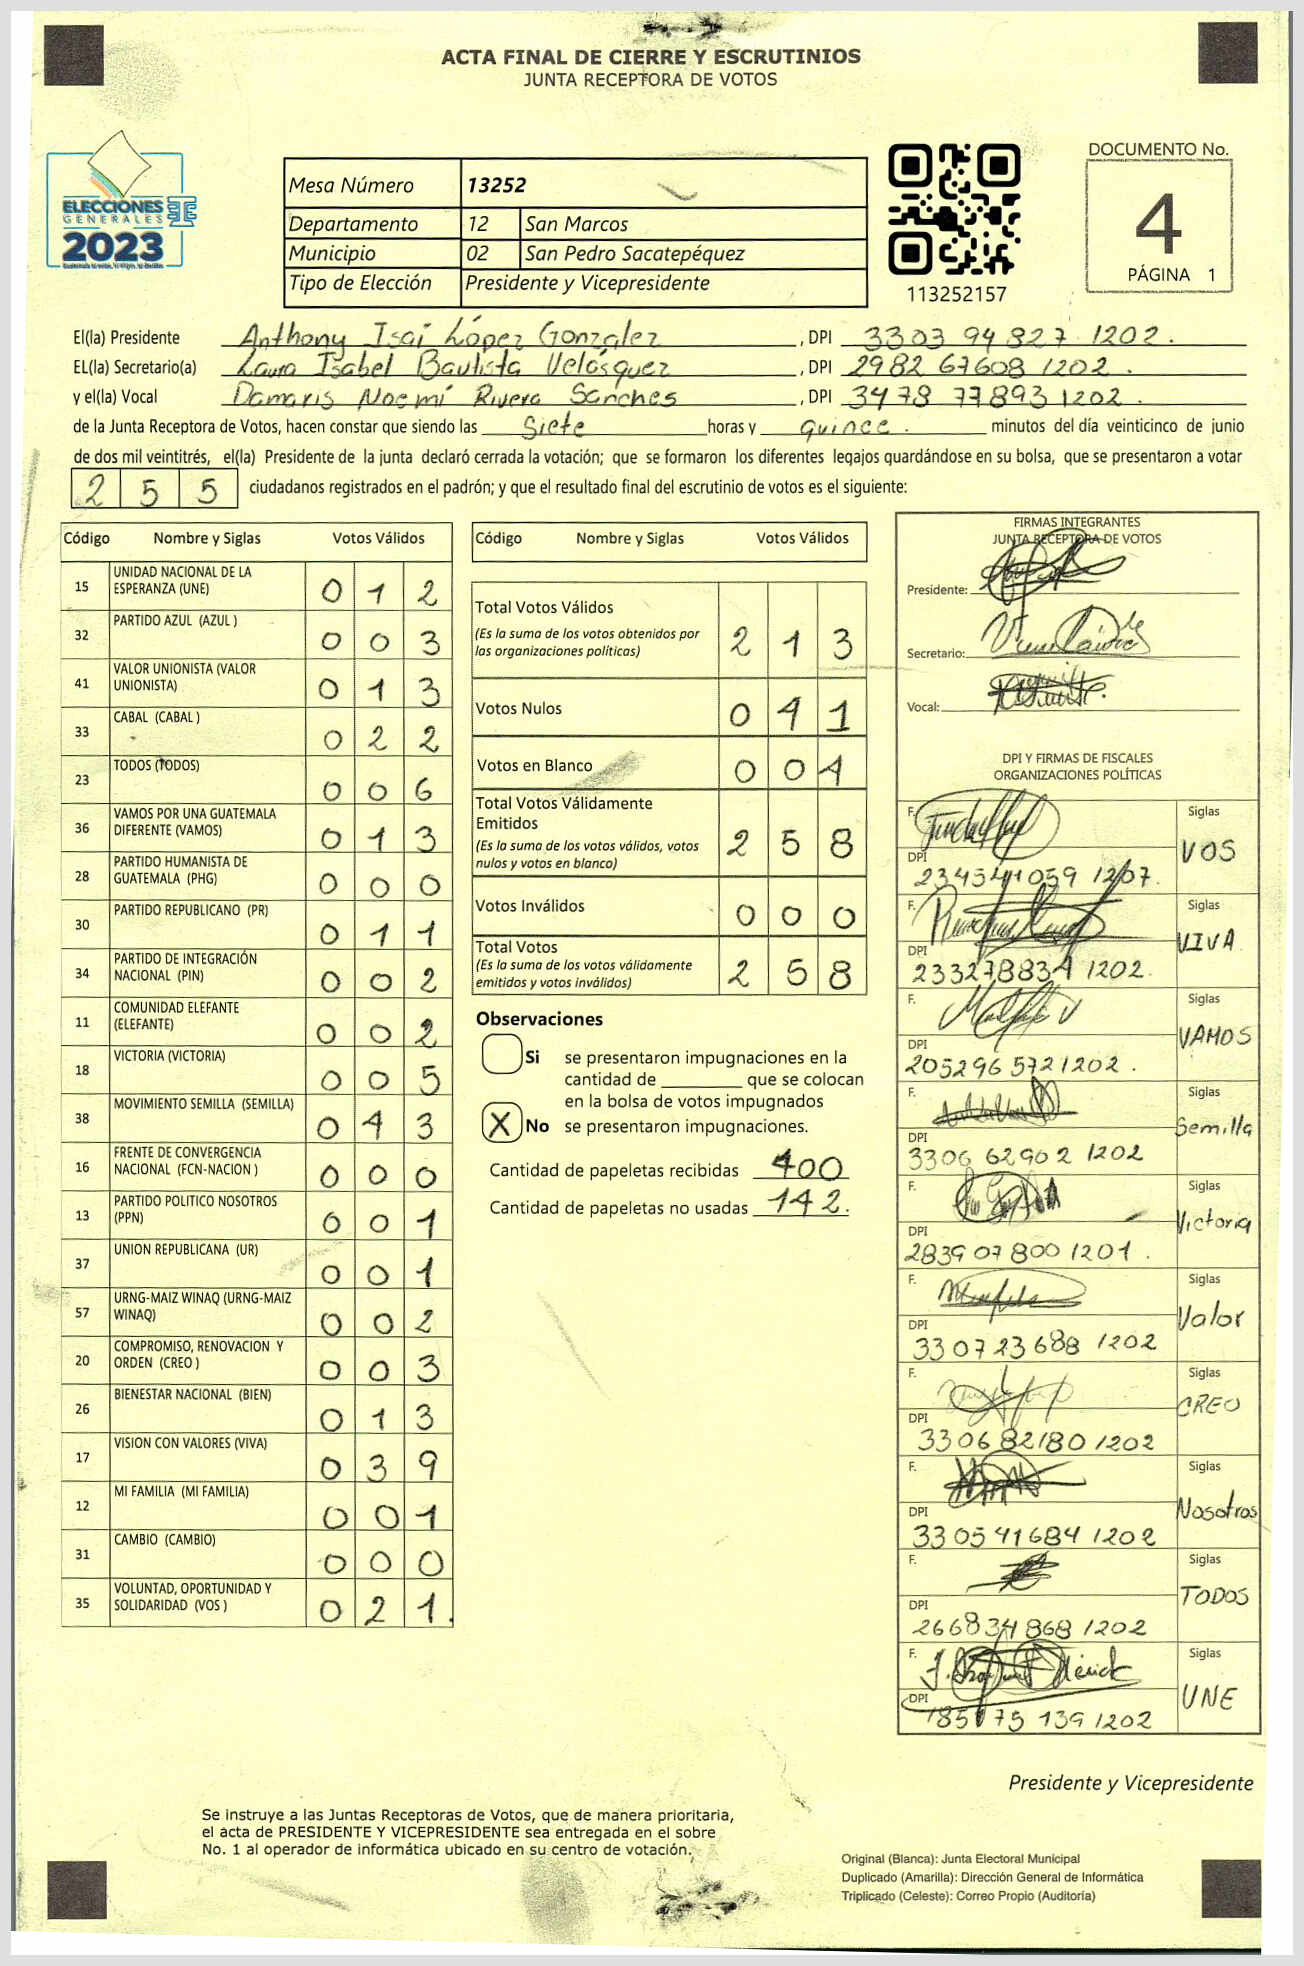 ACTA FINAL DE CIERRE Y ESCRUTINIOS
JUNTA RECEPTORA DE VOTOS
ELECCIONES
GENERALES
2023
Mesa Número 13252
Departamento 12 San Marcos
Municipio 02 San Pedro Sacatepéquez
Tipo de Elección Presidente y Vicepresidente
113252157
DOCUMENTO No.
4
PÁGINA 1
El(la) Presidente Anthony Isaí López Gonzalez, DPI 3303 94 827 1202.
EL(la) Secretario(a) Laura Isabel Bautista Velásquez, DPI 2982 67608 1202.
y el(la) Vocal Damaris Noemí Rivera Sanches, DPI 3478 77893 1202.
de la Junta Receptora de Votos, hacen constar que siendo las Siete horas y quince. minutos del día veinticinco de junio
de dos mil veintitrés, el(la) Presidente de la junta declaró cerrada la votación; que se formaron los diferentes legajos guardándose en su bolsa, que se presentaron a votar
2 5 5 ciudadanos registrados en el padrón; y que el resultado final del escrutinio de votos es el siguiente:
Código Nombre y Siglas Votos Válidos
15 UNIDAD NACIONAL DE LA ESPERANZA (UNE) 0 1 2
32 PARTIDO AZUL (AZUL ) 0 0 3
41 VALOR UNIONISTA (VALOR UNIONISTA) 0 1 3
33 CABAL (CABAL ) 0 2 2
23 TODOS (TODOS) 0 0 6
36 VAMOS POR UNA GUATEMALA DIFERENTE (VAMOS) 0 1 3
28 PARTIDO HUMANISTA DE GUATEMALA (PHG) 0 0 0
30 PARTIDO REPUBLICANO (PR) 0 1 1
34 PARTIDO DE INTEGRACIÓN NACIONAL (PIN) 0 0 2
11 COMUNIDAD ELEFANTE (ELEFANTE) 0 0 2
18 VICTORIA (VICTORIA) 0 0 5
38 MOVIMIENTO SEMILLA (SEMILLA) 0 4 3
16 FRENTE DE CONVERGENCIA NACIONAL (FCN-NACION ) 0 0 0
13 PARTIDO POLITICO NOSOTROS (PPN) 0 0 1
37 UNION REPUBLICANA (UR) 0 0 1
57 URNG-MAIZ WINAQ (URNG-MAIZ WINAQ) 0 0 2
20 COMPROMISO, RENOVACION Y ORDEN (CREO ) 0 0 3
26 BIENESTAR NACIONAL (BIEN) 0 1 3
17 VISION CON VALORES (VIVA) 0 3 9
12 MI FAMILIA (MI FAMILIA) 0 0 1
31 CAMBIO (CAMBIO) 0 0 0
35 VOLUNTAD, OPORTUNIDAD Y SOLIDARIDAD (VOS ) 0 2 1.
Código Nombre y Siglas Votos Válidos
Total Votos Válidos 2 1 3
(Es la suma de los votos obtenidos por
las organizaciones políticas)
Votos Nulos 0 4 1
Votos en Blanco 0 0 4
Total Votos Válidamente
Emitidos 2 5 8
(Es la suma de los votos válidos, votos
nulos y votos en blanco)
Votos Inválidos 0 0 0
Total Votos 2 5 8
(Es la suma de los votos válidamente
emitidos y votos inválidos)
Observaciones
Si se presentaron impugnaciones en la
cantidad de ________ que se colocan
en la bolsa de votos impugnados
X No se presentaron impugnaciones.
Cantidad de papeletas recibidas 400
Cantidad de papeletas no usadas 142.
FIRMAS INTEGRANTES
JUNTA RECEPTORA DE VOTOS
Presidente:
Secretario:
Vocal:
DPI Y FIRMAS DE FISCALES
ORGANIZACIONES POLÍTICAS
F. Siglas
VOS
DPI
234541059 1207.
F. Siglas
VIVA
DPI
233278834 1202.
F. Siglas
VAMOS
DPI
205296 5721202.
F. Siglas
Semilla
DPI
3306 62902 1202
F. Siglas
Victoria
DPI
283907800 1201.
F. Siglas
Valor
DPI
330723688 1202
F. Siglas
CREO
DPI
330682180 1202
F. Siglas
Nosotros
DPI
330541684 1202
F. Siglas
TODOS
DPI
266834868 1202
F. Siglas
UNE
DPI
1202
Presidente y Vicepresidente
Se instruye a las Juntas Receptoras de Votos, que de manera prioritaria,
el acta de PRESIDENTE Y VICEPRESIDENTE sea entregada en el sobre
No. 1 al operador de informática ubicado en su centro de votación.
Original (Blanca): Junta Electoral Municipal
Duplicado (Amarilla): Dirección General de Informática
Triplicado (Celeste): Correo Propio (Auditoría)